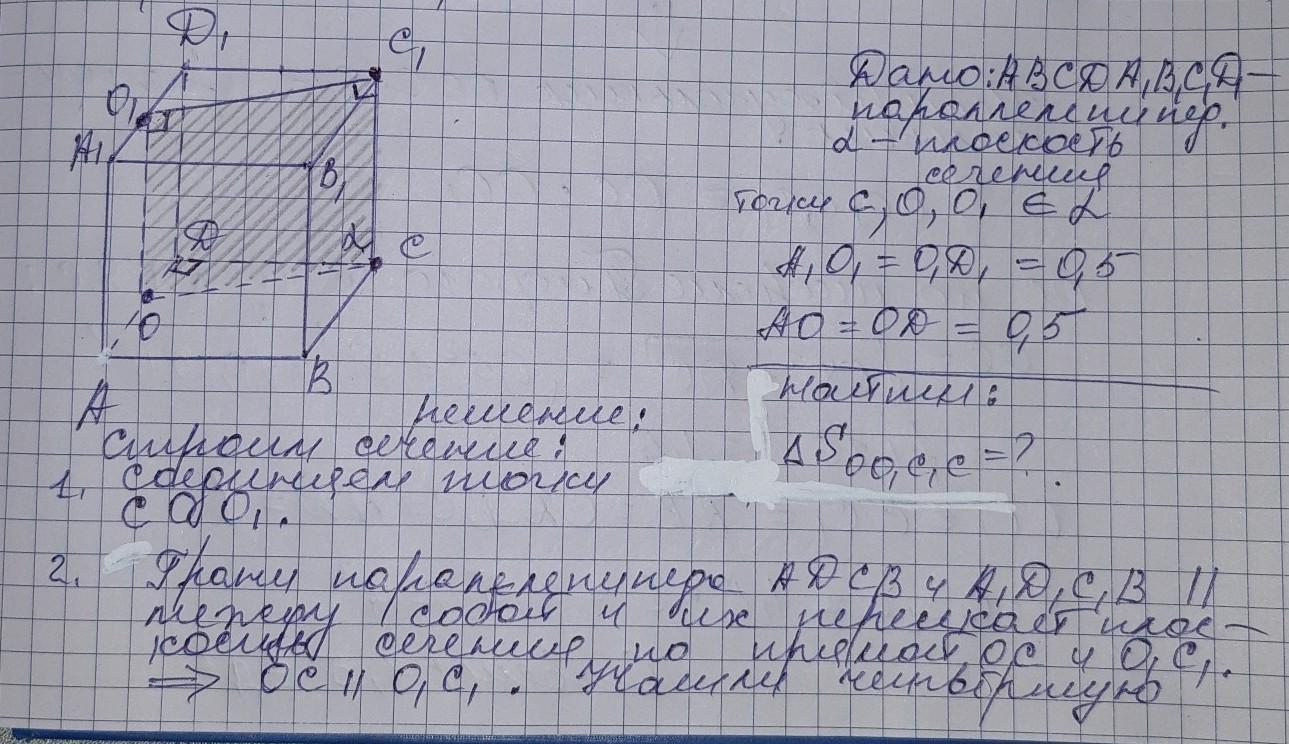 D₁
C₁
O₁
A₁
B₁
D
α
C
O
B
A
Дано: ABCDA₁B₁C₁D₁ —
параллелипер.
α – плоскость
сечения
точки C, O, O₁ ∈ α
A₁O₁ = O₁D₁ = 0,5
AO = OD = 0,5
Найти:
ΔS OO₁C₁C = ?
решение:
Строим сечение:
1. Соединяем точки
C O O₁.
2. Грани параллелепипеда ADCB и A₁D₁C₁B ||
между собой и их пересекает плос-
костью сечения по прямой OC и O₁C₁.
⇒ OC || O₁C₁. Нашли четвёртую